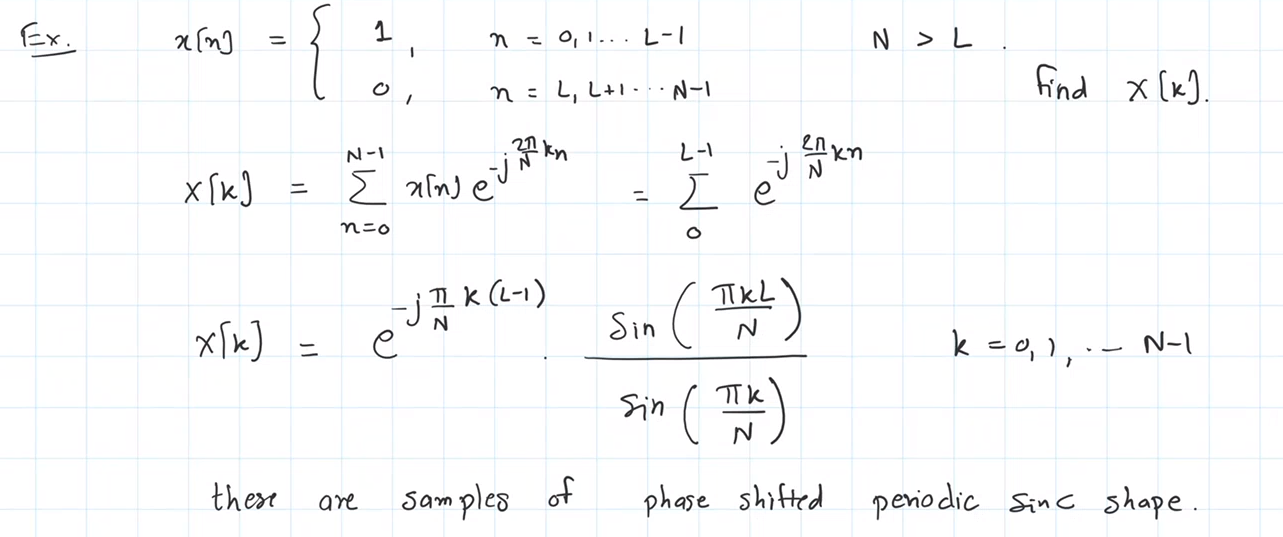 Ex. x[n] = { 1, n = 0, 1... L-1 N > L.
0, n = L, L+1... N-1 find X[k].
X[k] = \sum_{n=0}^{N-1} x[n] e^{-j\frac{2π}{N}kn} = \sum_{0}^{L-1} e^{-j\frac{2π}{N}kn}
X[k] = e^{-j\frac{π}{N}k(L-1)} . \frac{sin(\frac{πkL}{N})}{sin(\frac{πk}{N})} k = 0, 1, ... N-1
these are samples of phase shifted periodic sinc shape.